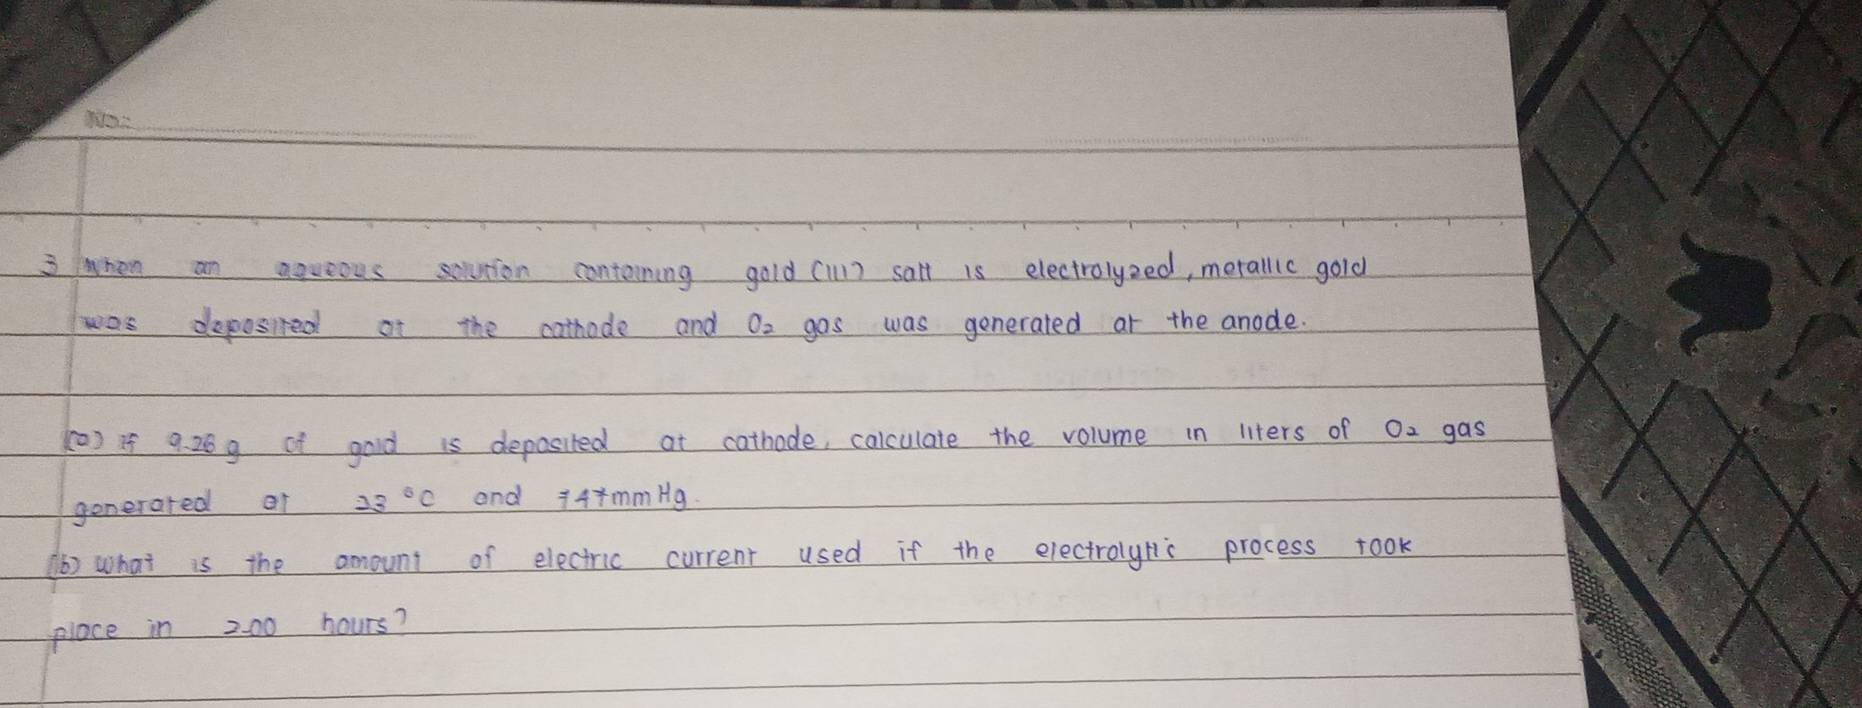 No:
3 When an aqueous solution containing gold (III) salt is electrolyzed, metallic gold
was deposited at the cathode and O2 gas was generated at the anode.
(a) if 9.26 g of gold is deposited at cathode, calculate the volume in liters of O2 gas
generated at 23 °C and 747mm Hg.
(b) what is the amount of electric current used if the electrolytic process took
place in 2.00 hours?